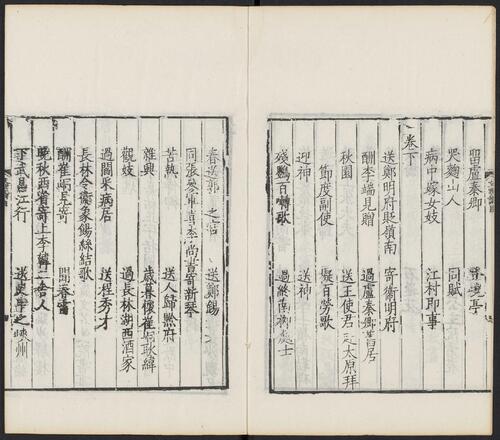 留盧秦卿
哭麴山人 同賦
病中嫁女妓 江村即事
卷下
送鄭明府貶嶺南 寄衛明府
酬李端見贈 過盧秦卿舊居
秋園 送王使君赴太原拜
節度副使 擬百勞歌
迎神 送神
殘鶯百囀歌 過終南
處士
春送郭 之 送鄭錫
同張參軍喜李尚書寄新琴
苦熱 送人歸黔府
雜興 歲暮懷崔峒耿緯
觀妓 過長林湖西酒家
過閻采病居 送程秀才
長林令衛象餳絲結歌
酬崔峒見寄 聞春雷
晚秋西省寄上李韓二舍人
下武昌江行 送史申之峽州